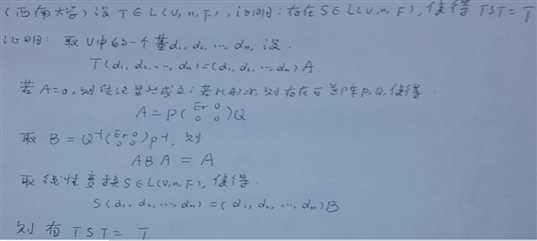 (西南大学) 设 T∈L(V,n,F), 证明: 存在 S∈L(V,n,F), 使得 TST=T
证明: 取 V 中的一个基 d₁, d₂, … dₙ, 设
T(d₁, d₂, …, dₙ)=(d₁, d₂, …, dₙ)A
若 A=0, 则结论显然成立; 若 r(A)=r, 则存在可逆阵 P, Q, 使得
A = P(Er 0 0 0)Q
取 B = Q⁻¹(Er 0 0 0)P⁻¹, 则
ABA = A
取线性变换 S∈L(V,n,F), 使得
S(d₁, d₂, …, dₙ)=(d₁, d₂, …, dₙ)B
则有 TST = T